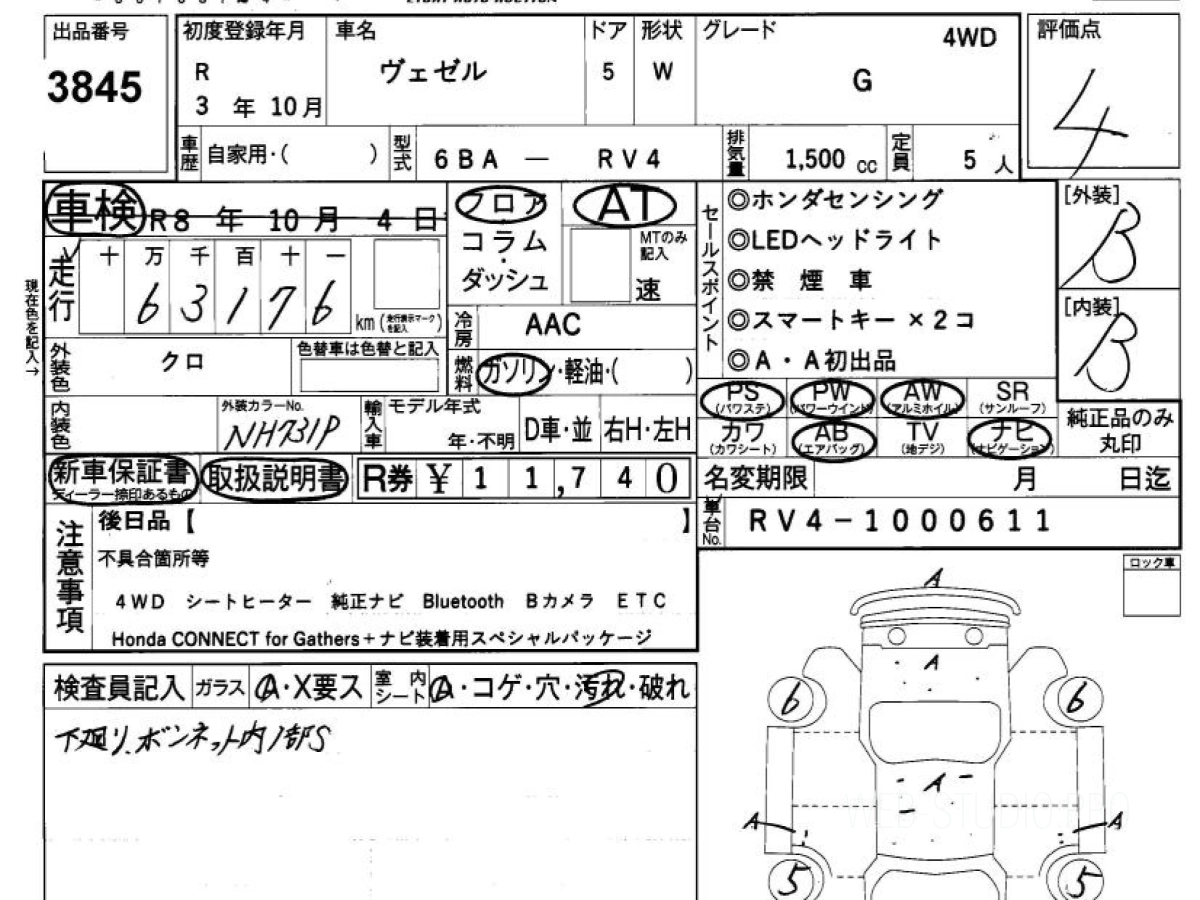 出品番号
3845
初度登録年月
R
3 年 10 月
車名
ヴェゼル
ドア
5
形状
W
グレード
4WD
G
評価点
4
車歴 自家用・( )
型式 6BA － RV4
排気量 1,500 cc
定員 5 人
車検 R8 年 10 月 4 日
フロア
コラム
・
ダッシュ
AT
MTのみ
記入
速
現在色を記入→
走行
十 万 千 百 十 一
6 3 1 7 6
km (走行表示マークを記入)
冷房 AAC
燃料 ガソリン・軽油・( )
外装色 クロ
色替車は色替と記入
内装色
外装カラーNo.
NH731P
輸入車
モデル年式
年・不明
D車・並
右H・左H
新車保証書
ディーラー捺印あるもの
取扱説明書
R券 ￥ 1 1,7 4 0
セールスポイント
◎ホンダセンシング
◎LEDヘッドライト
◎禁 煙 車
◎スマートキー×2コ
◎A・A初出品
[外装]
B
[内装]
B
PS (パワステ)
PW (パワーウインド)
AW (アルミホイル)
SR (サンルーフ)
カワ (カワシート)
AB (エアバッグ)
TV (地デジ)
ナビ (ナビゲーション)
純正品のみ
丸印
名変期限 月 日迄
車台No. RV4-1000611
注意事項
後日品【 】
不具合箇所等
4WD シートヒーター 純正ナビ Bluetooth Bカメラ ETC
Honda CONNECT for Gathers＋ナビ装着用スペシャルパッケージ
検査員記入
ガラス A・X要ス
室内シート A・コゲ・穴・汚れ・破れ
下廻り、ボンネット内部S
ロック車
A
A
6
6
A
A
A
5
5
WEB STUDIO PRO